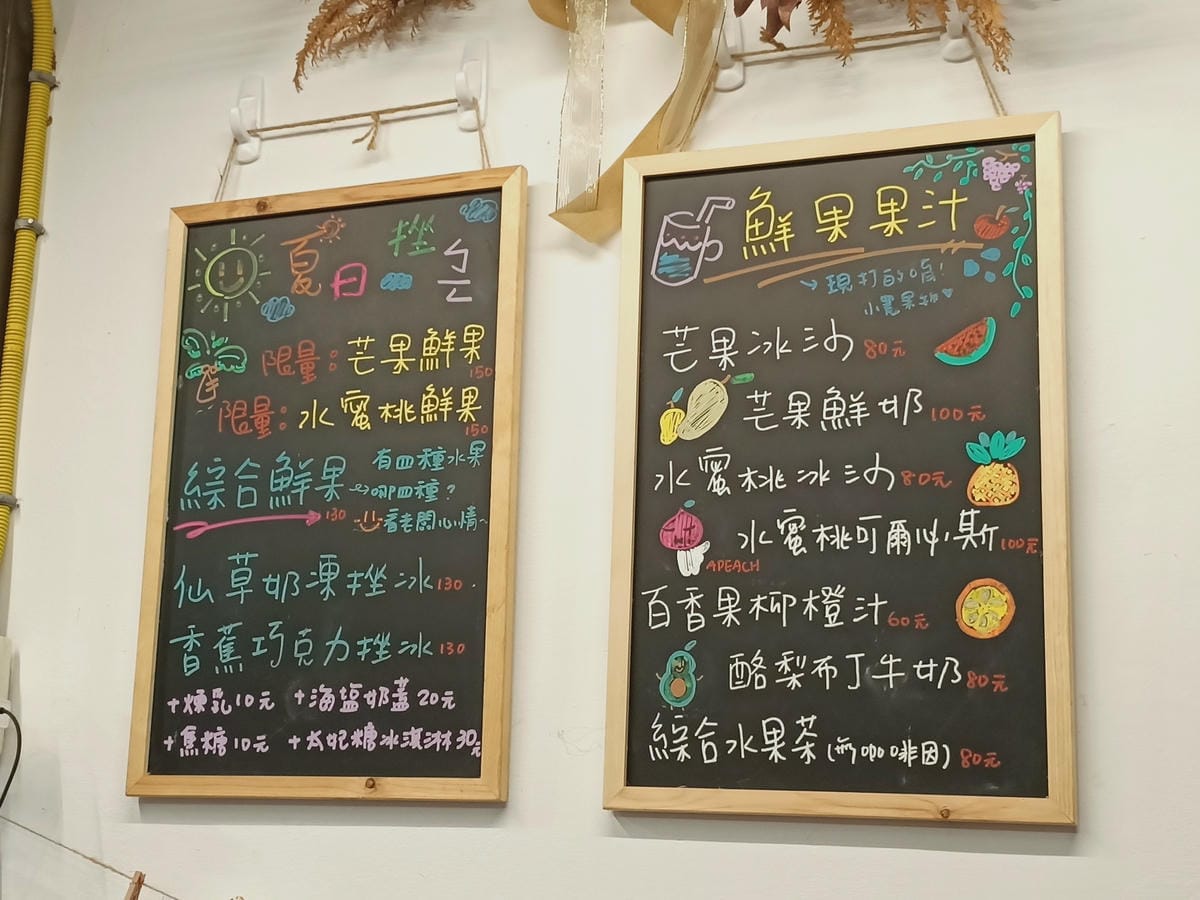 夏日挫ㄅㄥ
限量：芒果鮮果150
限量：水蜜桃鮮果150
綜合鮮果130
有四種水果
哪四種？
看老闆心情~
仙草奶凍挫冰130
香蕉巧克力挫冰130
+煉乳10元 +海鹽奶蓋20元
+焦糖10元 +太妃糖冰淇淋30元
鮮果果汁
現打的唷！
芒果冰沙80元
芒果鮮奶100元
水蜜桃冰沙80元
水蜜桃可爾必斯100元
APEACH
百香果柳橙汁60元
酪梨布丁牛奶80元
綜合水果茶(無咖啡因)80元